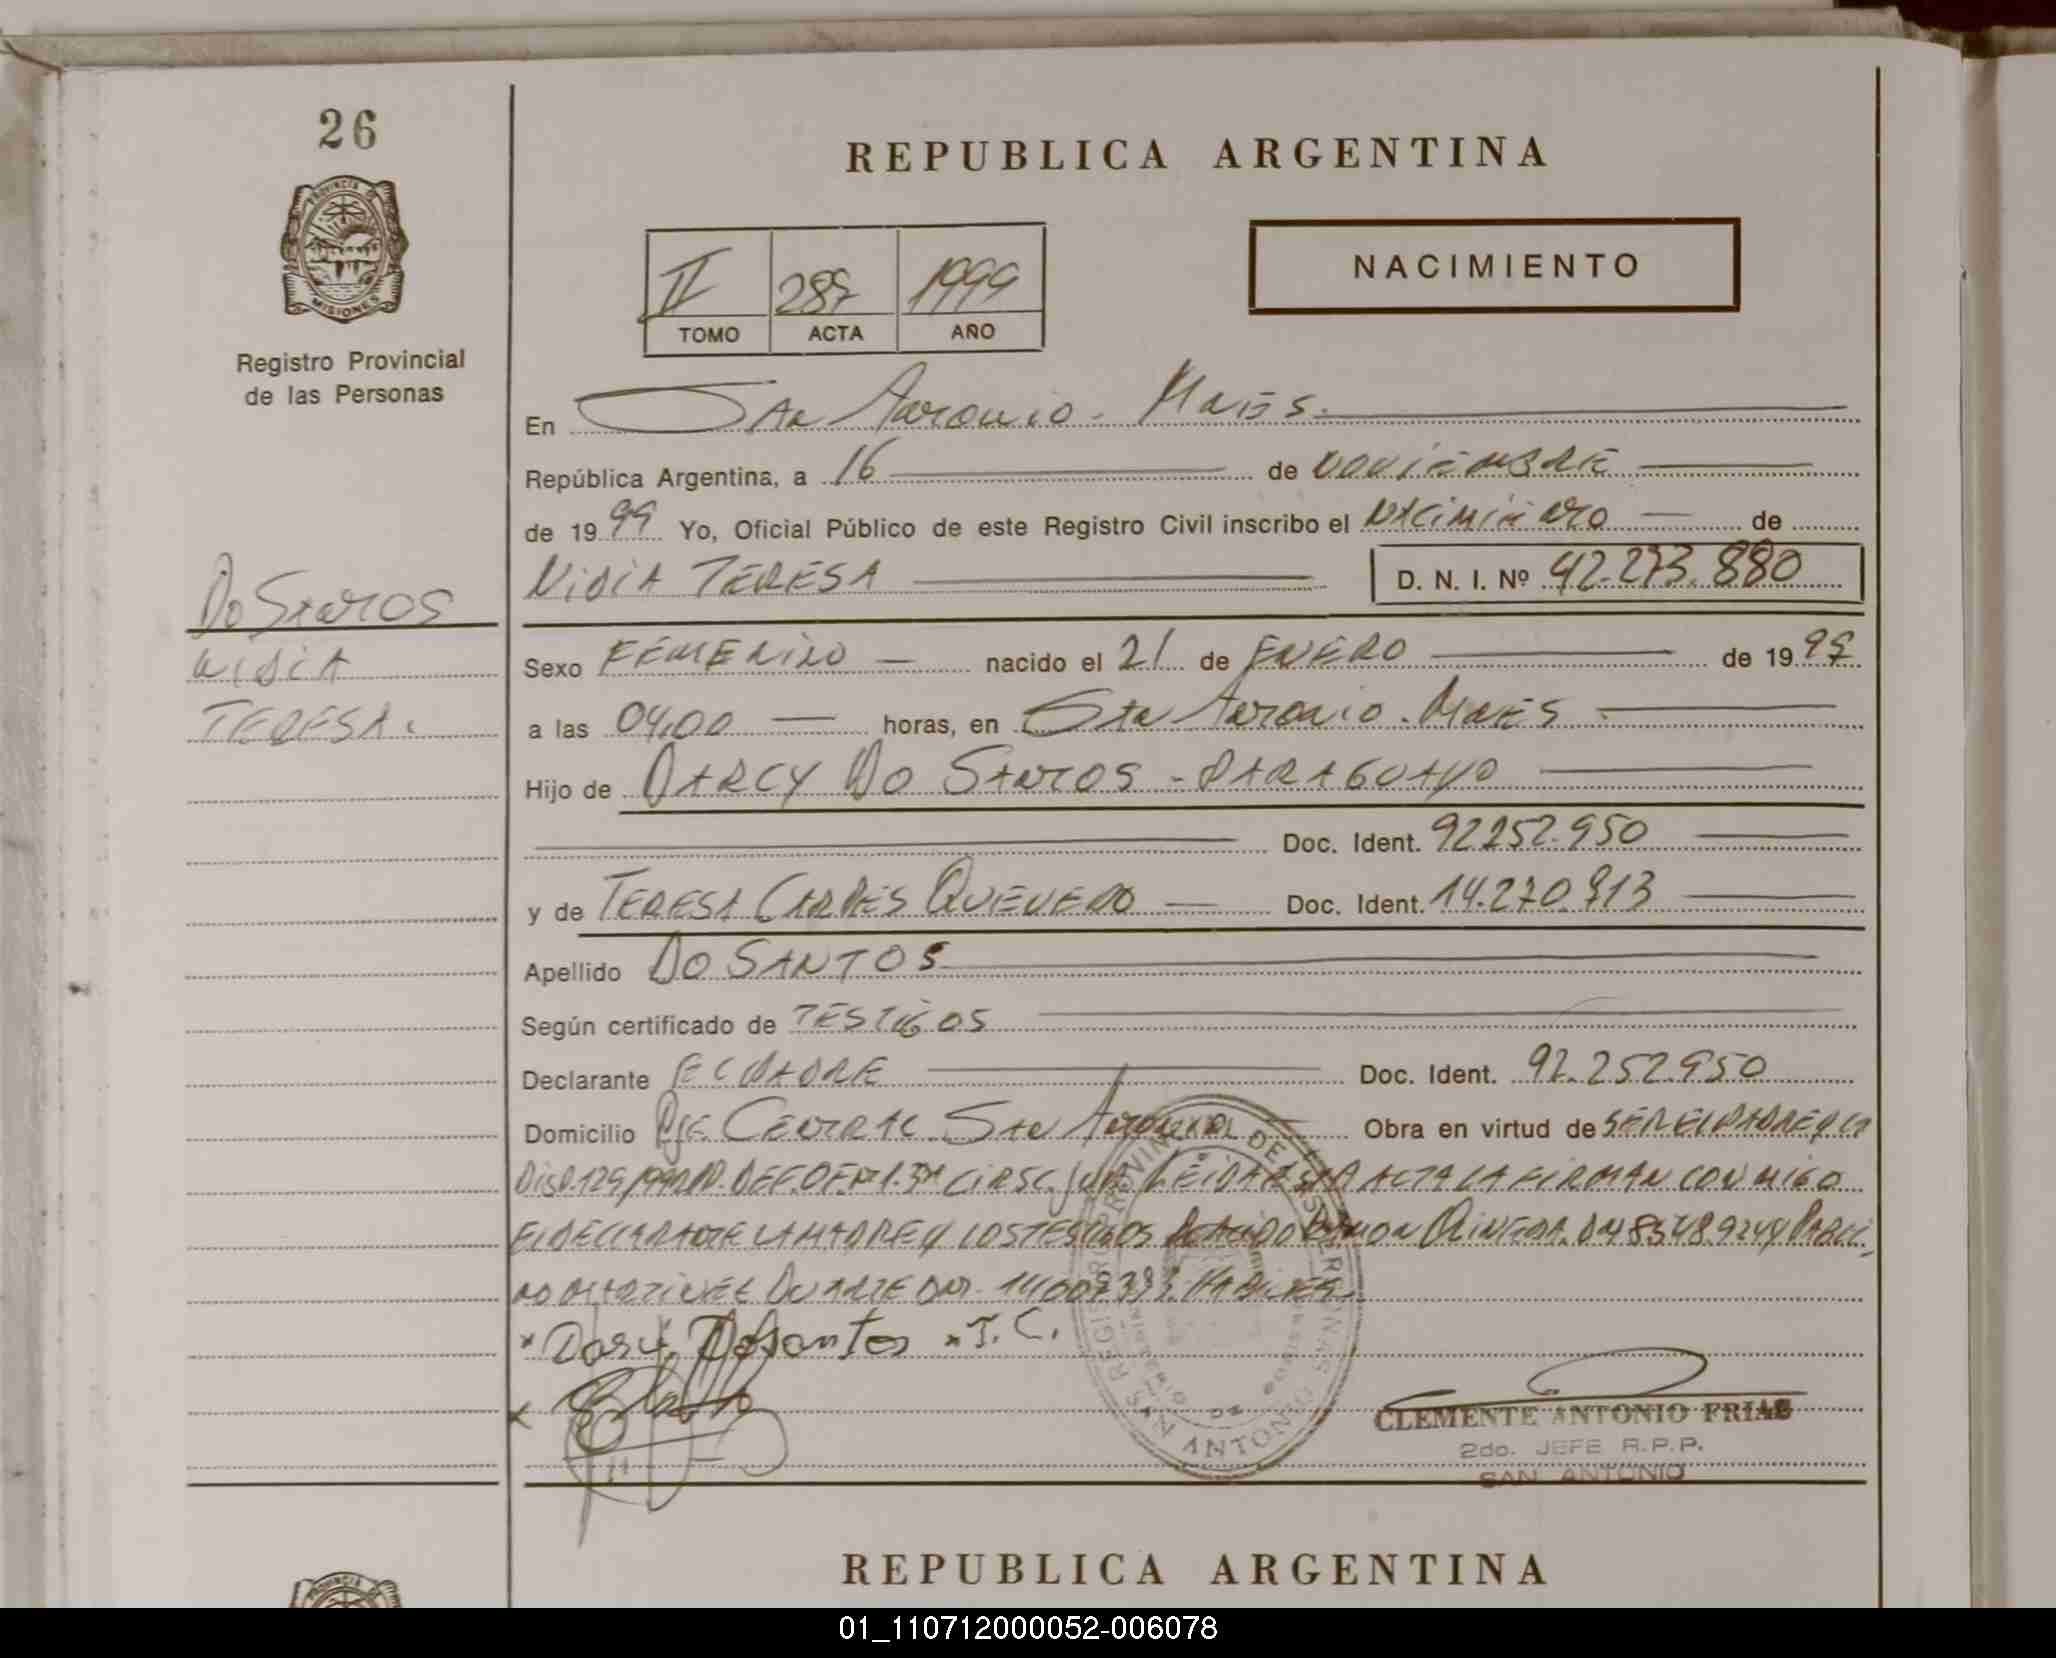 26
REPUBLICA ARGENTINA
PROVINCIA DE
MISIONES
Registro Provincial
de las Personas
II 287 1999
TOMO ACTA AÑO
NACIMIENTO
En San Antonio - Mnes.
República Argentina, a 16 de NOVIEMBRE
de 1999 Yo, Oficial Público de este Registro Civil inscribo el NACIMIENTO de
NIDIA TERESA D. N. I. Nº 42.273.880
DO SANTOS
NIDIA
TERESA.
Sexo FEMENINO nacido el 21 de ENERO de 1997
a las 04,00 horas, en San Antonio. Mnes
Hijo de DARCY DO SANTOS - PARAGUAYO
Doc. Ident. 92252.950
y de TERESA QUEVEDO Doc. Ident. 14.270.713
Apellido DO SANTOS
Según certificado de TESTIGOS
Declarante EL PADRE Doc. Ident. 92.252.950
Domicilio Pje CENTRAL San Antonio Obra en virtud de SER EL PADRE y LA
LEIDA ACTA LA FIRMAN CONMIGO
EL DECLARANTE LA MADRE y LOS TESTIGOS RAMON
DUARTE DNI HABILES
Dosantos x T. C.
x
REGISTRO PROVINCIAL DE LAS PERSONAS
SAN ANTONIO
CLEMENTE ANTONIO FRIAS
2do. JEFE R.P.P.
SAN ANTONIO
REPUBLICA ARGENTINA
PROVINCIA
01_110712000052-006078